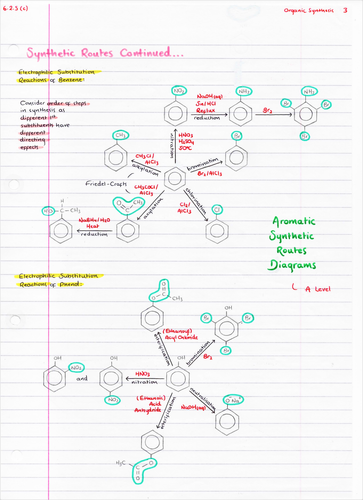 6.2.5 (c)
Organic Synthesis 3
Synthetic Routes Continued...
Electrophilic Substitution
Reactions of Benzene:
Consider order of steps
in synthesis as
different
substituents have
different
directing
effects
NO₂
NaOH(aq)
Sn/HCl
Reflux
reduction
NH₂
Br₂
NH₂
Br
Br
Br
CH₃
CH₃Cl/
AlCl₃
alkylation
HNO₃
H₂SO₄
50°C
nitration
Br
bromination
Br₂/AlCl₃
Friedel-Crafts
CH₃COCl/
AlCl₃
acylation
chlorination
Cl₂/
AlCl₃
Cl
HO
H
C
CH₃
NaBH₄/H₂O
Heat
reduction
O
C
CH₃
Aromatic
Synthetic
Routes
Diagrams
A Level
Electrophilic Substitution
Reactions of Phenol:
O
C
O
CH₃
(Ethanoyl)
Acyl Chloride
esterification
OH
Br
Br
Br
bromination
Br₂
OH
NO₂
and
OH
NO₂
HNO₃
nitration
OH
neutralisation
NaOH(aq)
O⁻Na⁺
(Ethanoic)
Acid
Anhydride
esterification
H₃C
C
O
O